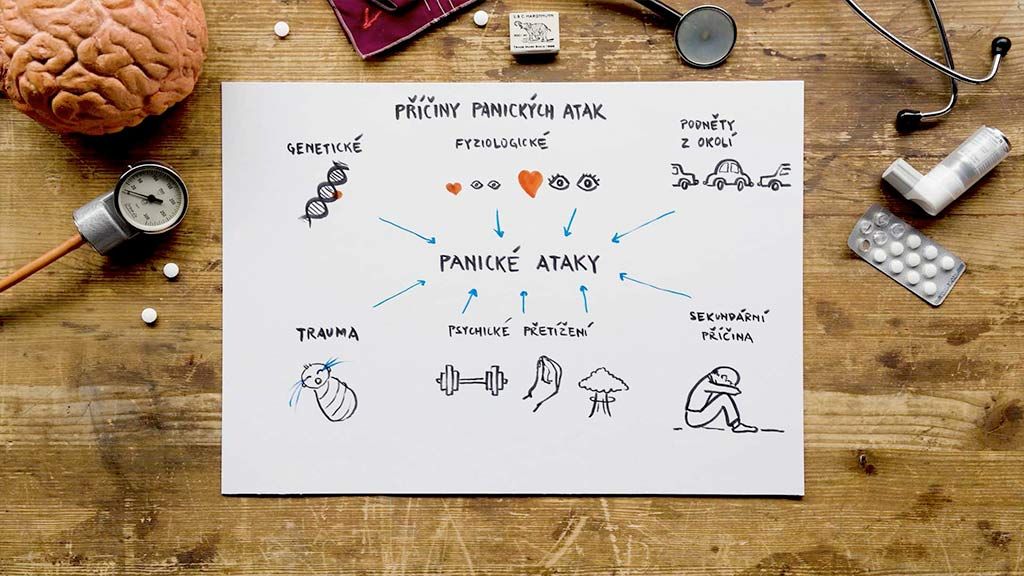 PŘÍČINY PANICKÝCH ATAK
GENETICKÉ
FYZIOLOGICKÉ
PODNĚTY
Z OKOLÍ
PANICKÉ ATAKY
TRAUMA
PSYCHICKÉ PŘETÍŽENÍ
SEKUNDÁRNÍ
PŘÍČINA
L.& C. HARDTMUTH